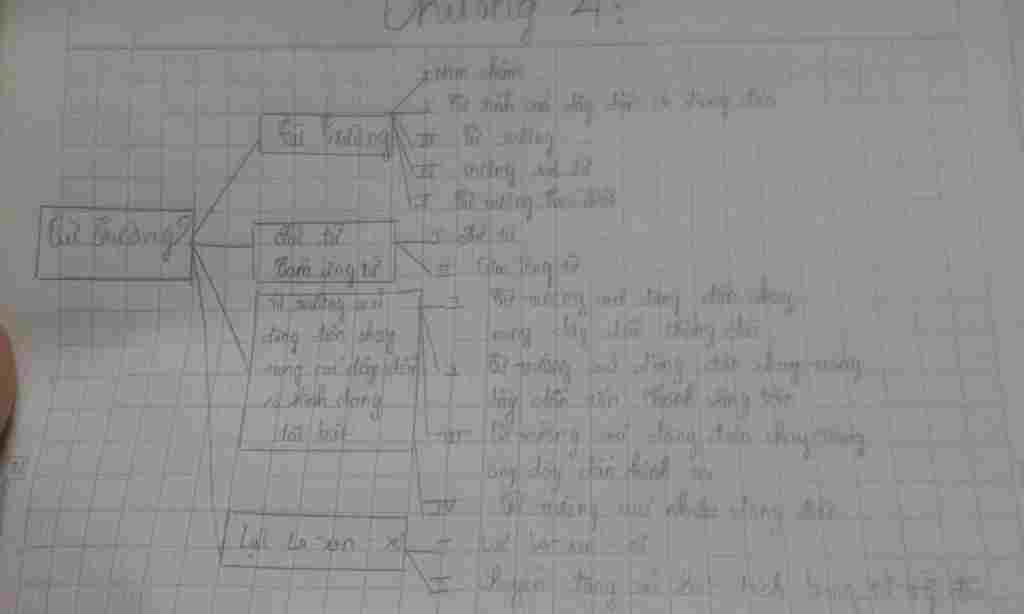 Chương 4:
I Nam châm
II Từ tính của dây dẫn có dòng điện
Từ trường
III Từ trường
IV Đường sức từ
V Từ trường Trái Đất
Từ trường?
Lực từ
Cảm ứng từ
I Lực từ
II Cảm ứng từ
Từ trường của
dòng điện chạy
trong các dây dẫn
có hình dạng
đặc biệt
I Từ trường của dòng điện chạy
trong dây dẫn thẳng dài
II Từ trường của dòng điện chạy trong
dây dẫn uốn thành vòng tròn
III Từ trường của dòng điện chạy trong
ống dây dẫn hình trụ
IV Từ trường của nhiều dòng điện
Lực Lo-ren-xơ
I Lực Lo-ren-xơ
II